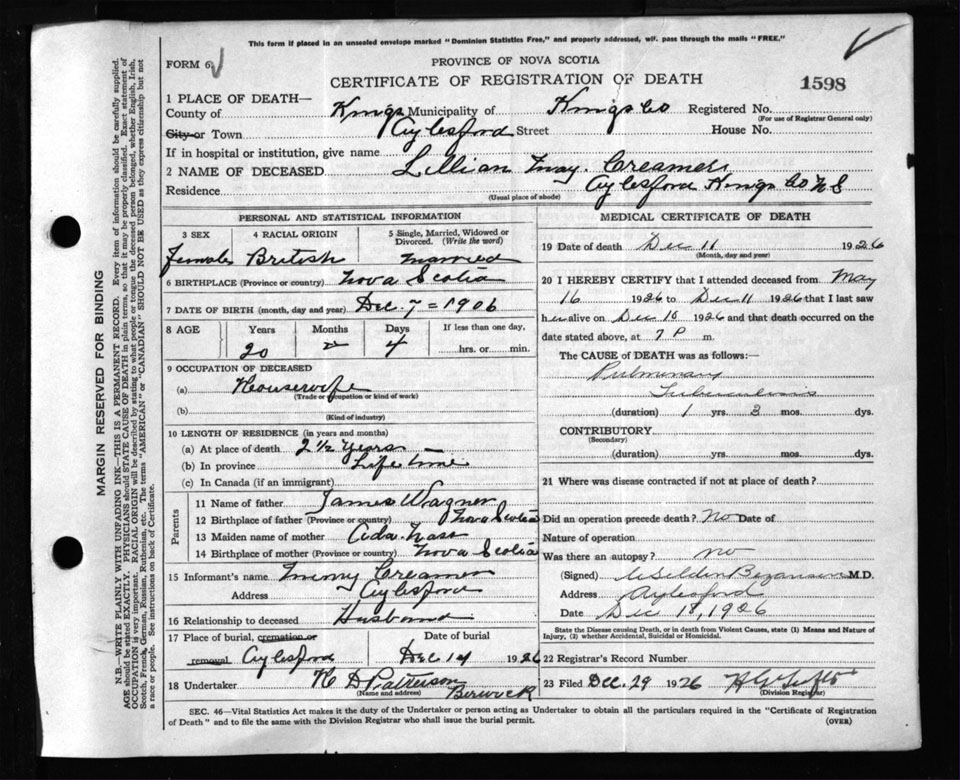 This form if placed in an unsealed envelope marked "Dominion Statistics Free," and properly addressed, will pass through the mails "FREE."
FORM 6
PROVINCE OF NOVA SCOTIA
CERTIFICATE OF REGISTRATION OF DEATH
1598
1 PLACE OF DEATH—
County of Kings Municipality of Kings Co Registered No.
(For use of Registrar General only)
City or Town Aylesford Street House No.
If in hospital or institution, give name
2 NAME OF DECEASED Lillian May Creamer
Residence Aylesford Kings Co N S
(Usual place of abode)
PERSONAL AND STATISTICAL INFORMATION
3 SEX 4 RACIAL ORIGIN 5 Single, Married, Widowed or Divorced. (Write the word)
Female British Married
6 BIRTHPLACE (Province or country) Nova Scotia
7 DATE OF BIRTH (month, day and year) Dec. 7 = 1906
8 AGE Years Months Days If less than one day,
20 4 hrs. or min.
9 OCCUPATION OF DECEASED
(a) Housewife
(Trade or occupation or kind of work)
(b)
(Kind of industry)
10 LENGTH OF RESIDENCE (in years and months)
(a) At place of death 2 1/2 Years
(b) In province Life time
(c) In Canada (if an immigrant)
Parents
11 Name of father James Wagner
12 Birthplace of father (Province or country) Nova Scotia
13 Maiden name of mother Ada
14 Birthplace of mother (Province or country) Nova Scotia
15 Informant's name Creamer
Address Aylesford
16 Relationship to deceased Husband
17 Place of burial, cremation or removal Aylesford Date of burial Dec 14 1926
18 Undertaker H D Patterson Berwick
(Name and address)
MEDICAL CERTIFICATE OF DEATH
19 Date of death Dec 11 1926
(Month, day and year)
20 I HEREBY CERTIFY that I attended deceased from May
16 1926 to Dec 11 1926 that I last saw
her alive on Dec 10 1926 and that death occurred on
date stated above, at 7 P m.
The CAUSE of DEATH was as follows:
Pulmonary
Tuberculosis
(duration) 1 yrs. 3 mos. dys.
CONTRIBUTORY
(Secondary)
(duration) yrs. mos. dys.
21 Where was disease contracted if not at place of death?
Did an operation precede death? No Date of
Nature of operation
Was there an autopsy? no
(Signed) Bezanson M.D.
Address Aylesford
Date Dec 18, 1926
State the Disease causing Death, or in death from Violent Causes, state (1) Means and Nature of
Injury, (2) whether Accidental, Suicidal or Homicidal.
22 Registrar's Record Number
23 Filed Dec. 29 1926
(Division Registrar)
SEC. 46—Vital Statistics Act makes it the duty of the Undertaker or person acting as Undertaker to obtain all the particulars required in the "Certificate of Registration
of Death" and to file the same with the Division Registrar who shall issue the burial permit.
(OVER)
MARGIN RESERVED FOR BINDING
N.B.—WRITE PLAINLY WITH UNFADING INK—THIS IS A PERMANENT RECORD. Every item of information should be carefully supplied.
AGE should be stated EXACTLY. PHYSICIANS should STATE CAUSE OF DEATH in plain terms, so that it may be properly classified. Exact statement of
OCCUPATION is very important. RACIAL ORIGIN will be described by stating to what people or tongue the deceased person belonged, whether English, Irish,
Scotch, French, German, Russian, Ruthenian, etc. The terms "AMERICAN" or "CANADIAN" SHOULD NOT BE USED as they express citizenship but not
a race or people. See instructions on back of Certificate.